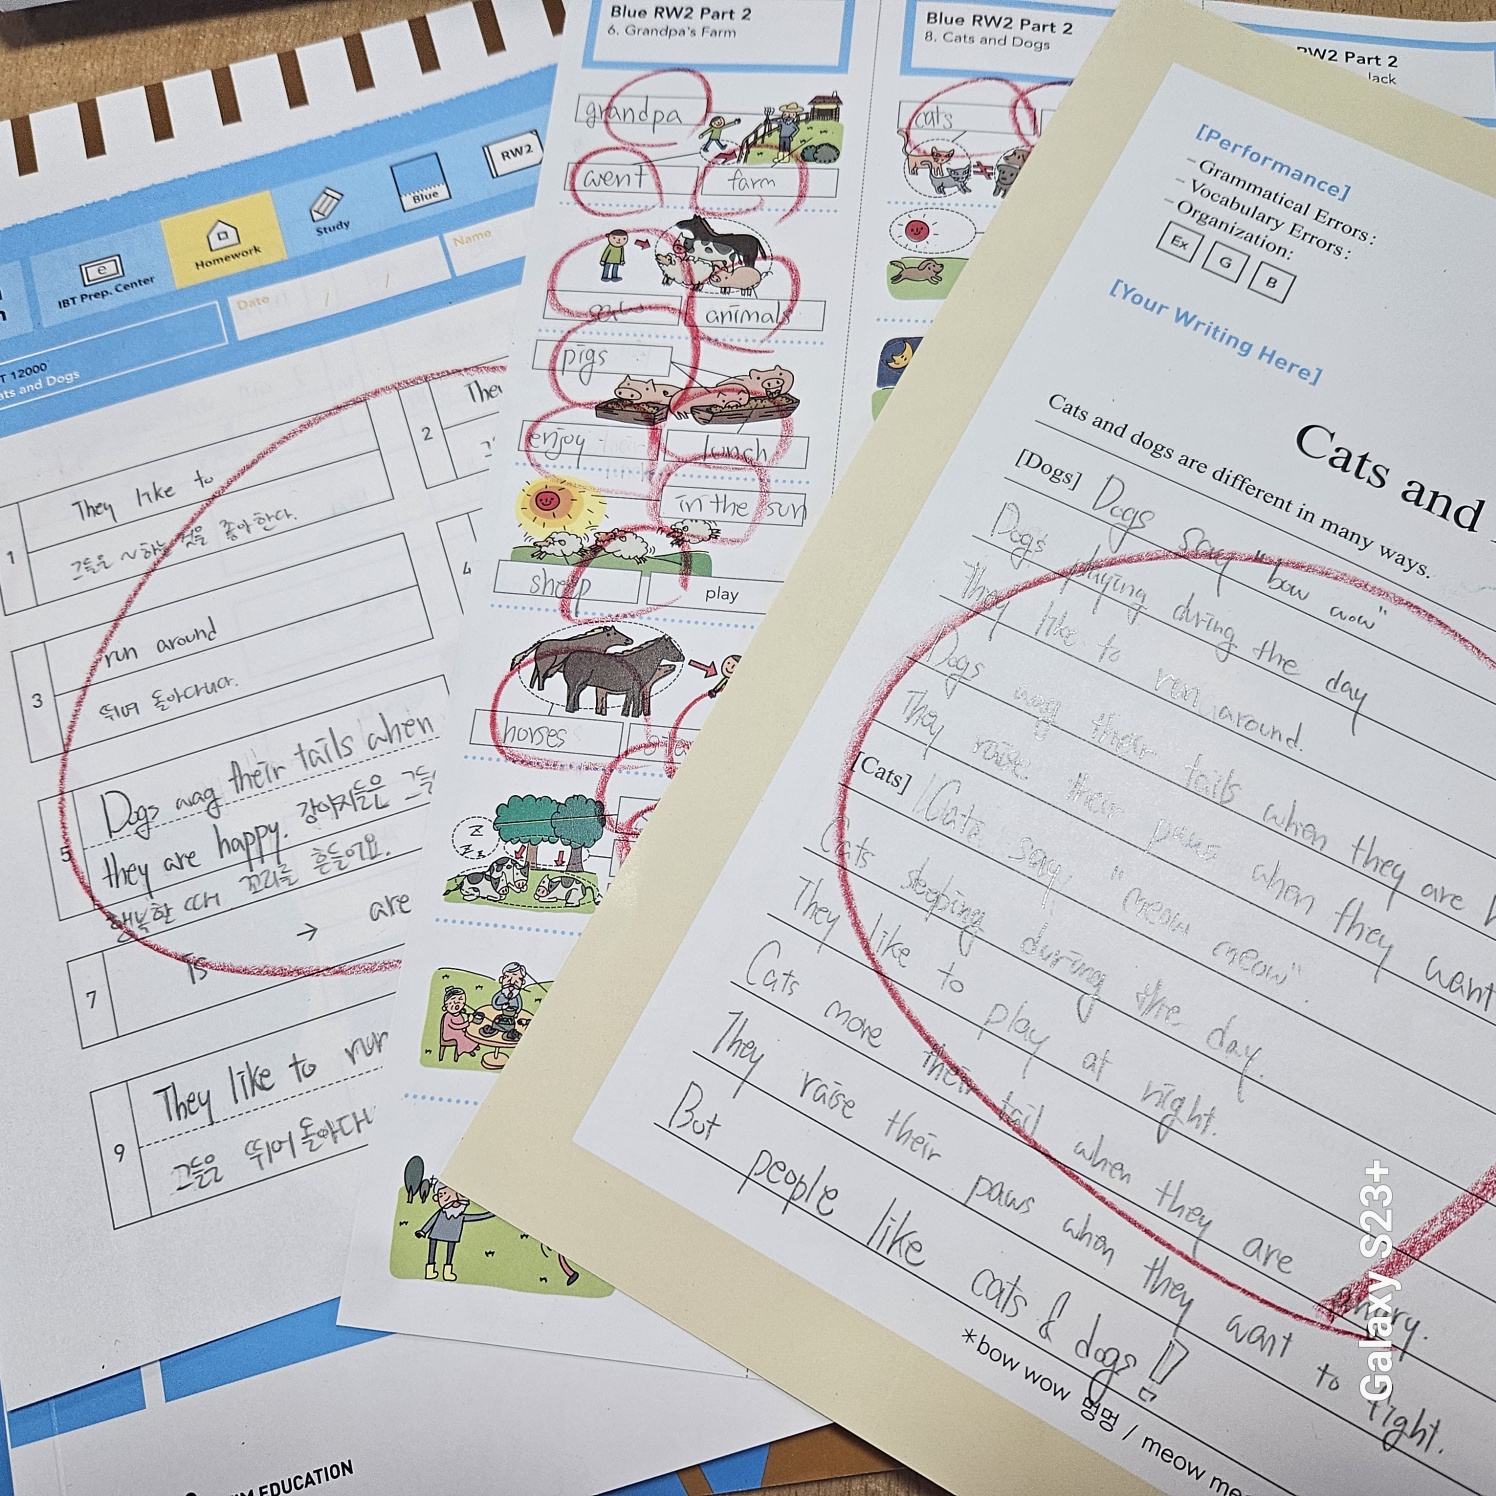 IBT Prep. Center
Homework
Study
Blue
RW2
Date / /
Name
T 12000
ats and Dogs
1
They like to
그들은 ~하는 것을 좋아한다.
2
3
run around
뛰어 돌아다니다.
4
5
Dogs wag their tails when
they are happy. 강아지들은 그들
행복한 때 꼬리를 흔들어요.
7
is → are
9
They like to run
그들은 뛰어 돌아다니
EDUCATION
Blue RW2 Part 2
6. Grandpa's Farm
grandpa
went
farm
animals
pigs
enjoy
lunch
in the sun
sheep
play
horses
Z
Blue RW2 Part 2
8. Cats and Dogs
cats
RW2 Part 2
Jack
[Performance]
- Grammatical Errors:
- Vocabulary Errors:
- Organization:
Ex G B
[Your Writing Here]
Cats and
Cats and dogs are different in many ways.
[Dogs] Dogs say "bow wow"
Dogs playing during the day
They like to run around.
Dogs wag their tails when they are
They raise their paws when they want
[Cats] Cats say "meow meow".
Cats sleeping during the day.
They like to play at night.
Cats more their tail when they are angry.
They raise their paws when they want to fight.
But people like cats & dogs!
*bow wow 멍멍 / meow me
Galaxy S23+